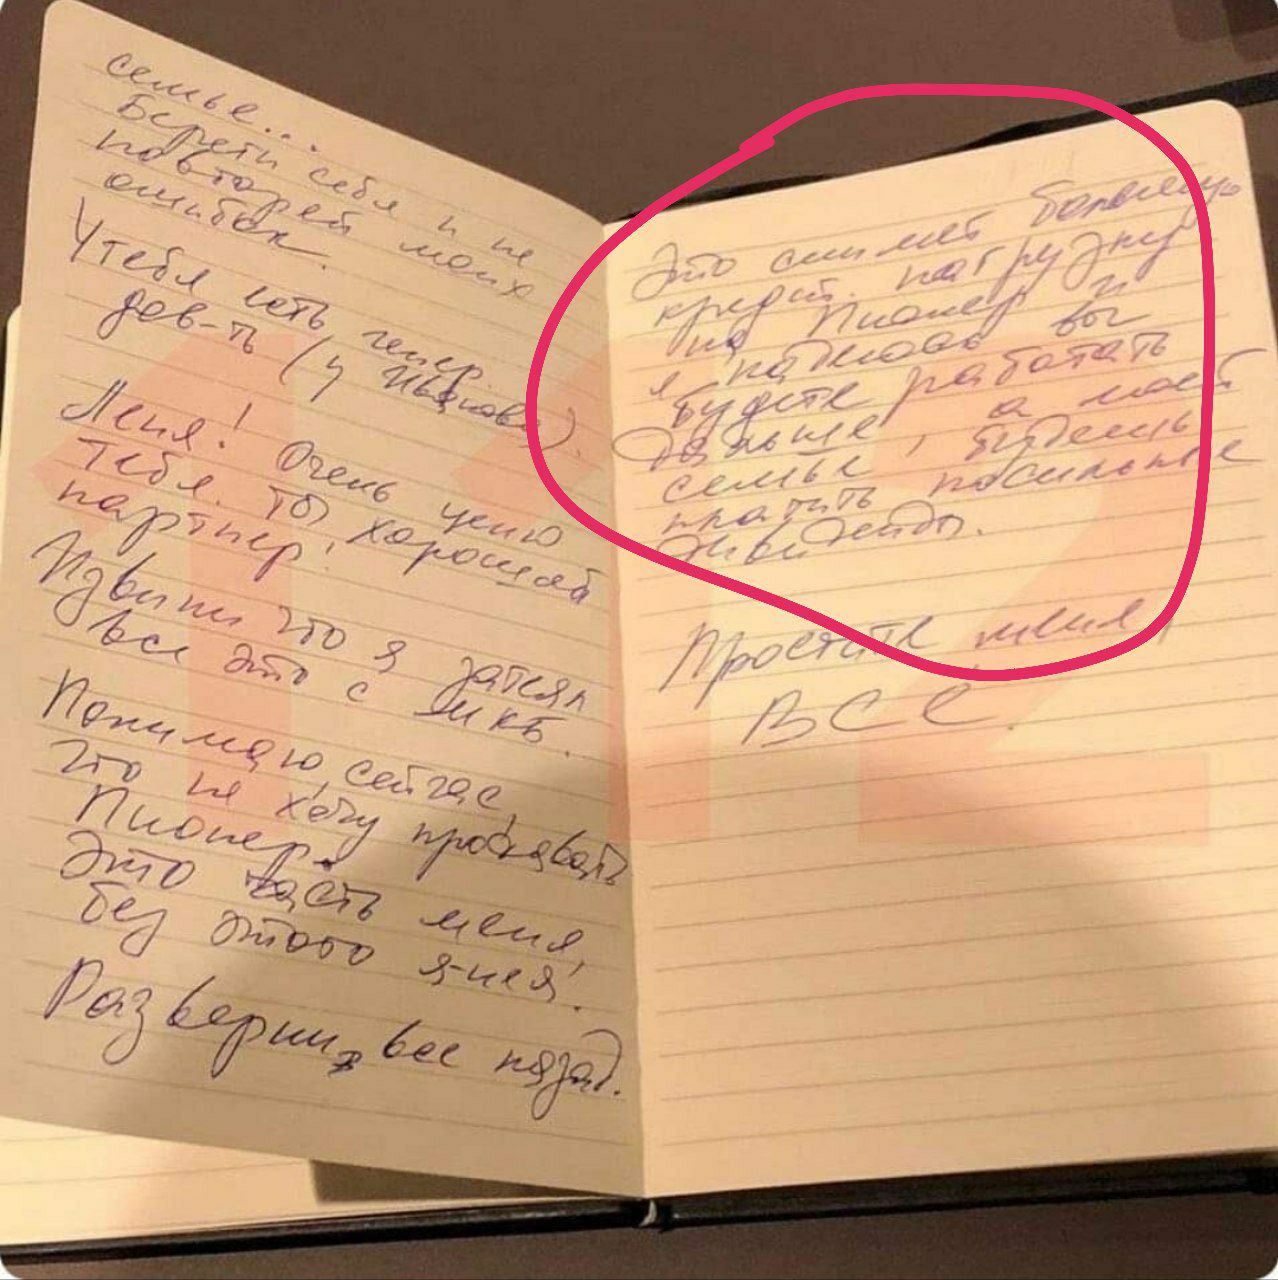 семье...
Береги себя и не
повторяй моих
ошибок.
У тебя есть генер.
дов-ть (у Иванова).
Леня! Очень ценю
тебя. Ты хороший
партнер!
Извини что я затеял
все это с МКБ.
Понимаю, сейчас,
что не хочу продавать
Пионер.
Это часть меня,
без этого я-не я!
Разверни все назад.
Это снимет большую
кредит. нагрузку
на Пионер и
я надеюсь вы
будете работать
дальше, а моей
семье, будешь
платить посильные
дивиденды.
Простите меня,
ВСЕ.
112